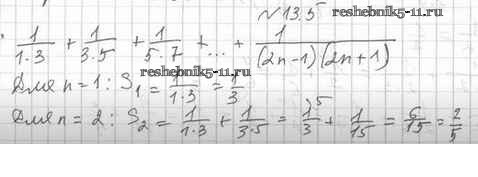 №13.5
reshebnik5-11.ru
1/(1·3) + 1/(3·5) + 1/(5·7) + ... + 1/((2n-1)(2n+1))
reshebnik5-11.ru
Для n=1: S₁ = 1/(1·3) = 1/3
Для n=2: S₂ = 1/(1·3) + 1/(3·5) = 1/3⁵ + 1/15 = 6/15 = 2/5